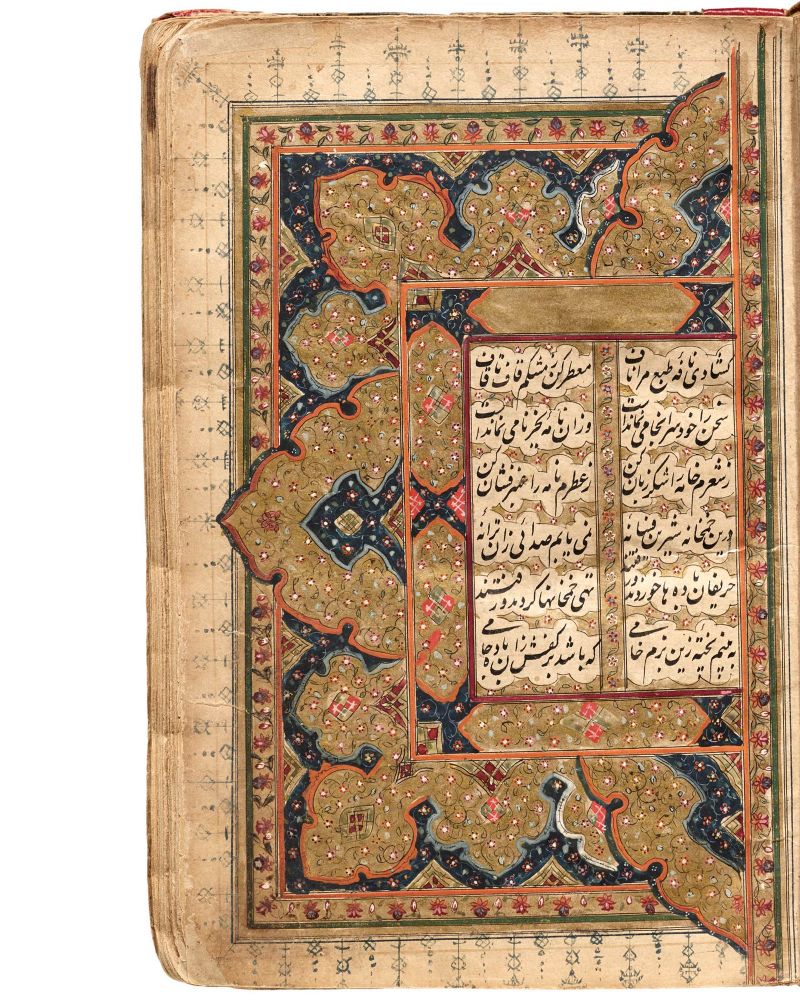 کشادی نافهٔ طبع مرا ناف معطر کن مشکم قاف تا قاف
سخن را خود سرانجامی نماندست وزان نامه بجز نامی نماندست
ز شعرم خامه را شکر زبان کن ز عطرم نامه را عنبر فشان کن
درین خمخانه شیرین فسانه نمی یابم صدائی زان ترانه
حریفان باده ها خوردند و رفتند تهی خمخانها کردند و رفتند
نه بینم پخته زین بزم خامی که باشد بر کفش زان باده جامی